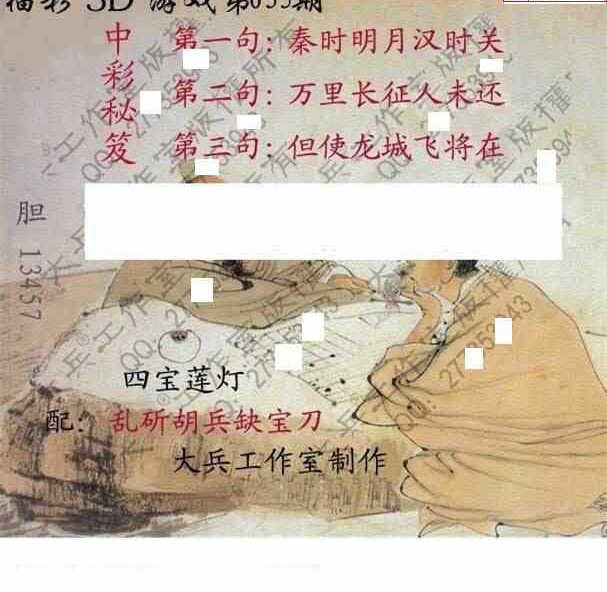 福彩 3D 游戏第055期
中彩秘笈
第一句：秦时明月汉时关
第二句：万里长征人未还
第三句：但使龙城飞将在
胆 13457
四宝莲灯
配：乱斫胡兵缺宝刀
大兵工作室制作